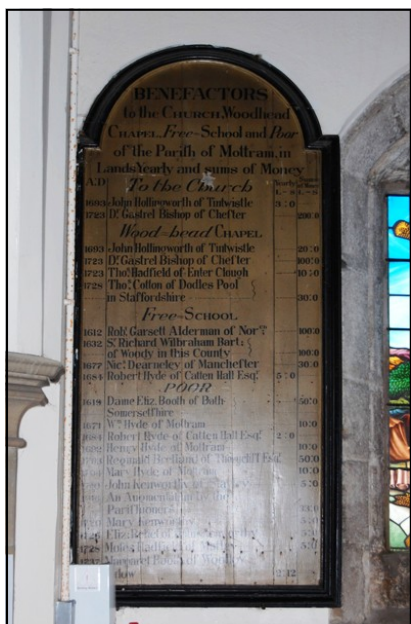 BENEFACTORS
to the CHURCH, Woodhead
CHAPEL, Free=School and Poor
of the Parish of Mottram, in
Lands Yearly and sums of Money
A.D. To the Church Yearly
L.=S L.=S
1693 John Hollingworth of Tintwistle 3:0
1723 Dr. Gastrel Bishop of Chester 200:0
Wood=head CHAPEL
1693 John Hollingworth of Tintwistle 20:0
1723 Dr. Gastrel Bishop of Chester 100:0
1723 Thos. Hadfield of Enter Clough 10:0
1728 Thos. Cotton of Dodles Pool
in Staffordshire 30:0
Free=SCHOOL
1612 Robt. Garsett Alderman of Nor 100:0
1632 Sr. Richard Wilbraham Bart:
of Woody in this County 100:0
1677 Nics. Dearneley of Manchester 30:0
1684 Robert Hyde of Catten Hall Esqr. 5:0
POOR
1619 Dame Eliz. Booth of Bath
Somersetshire 50:0
Wm. Hyde of Mottram 10:0
1684 Robert Hyde of Catten Hall Esqr. 2:0
Henry Hyde of Mottram 10:0
Reginald of Esqr. 50:0
Mary Hyde of Mottram 10:0
John Kenworthy of 5:0
An Augmentation by the
Mary Kenworthy
1728 Moses Hadfield 5:0
Margaret of